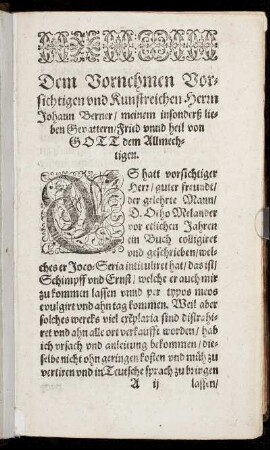 Dem Vornehmen Vor-
sichtigen vnd Kunstreichen Herrn
Johann Berner/ meinem insonders lie-
ben Gevattern/ Fried vnnd heil von
GOTT dem Allmech-
tigen.
ES hatt vorsichtiger
Herr/ guter freundt/
der gelehrte Mann/
D. Otho Melander
vor etlichen Jahren
ein Buch colligiret
vnd geschrieben/ wel-
ches er Joco-Seria intituliret hat/ das ist/
Schimpff vnd Ernst/ welche er auch mir
zu kommen lassen vnnd per typos meos
evulgirt vnd ahn tag kommen. Weil aber
solches wercks viel exẽplaria sind distrahi-
ret vnd ahn alle ort verkaufft worden/ hab
ich vrsach vnd anleitung bekommen/ die-
selbe nicht ohn geringen kosten vnd müh zu
vertiren vnd in Teutsche sprach zu bringen
A ij lassen/